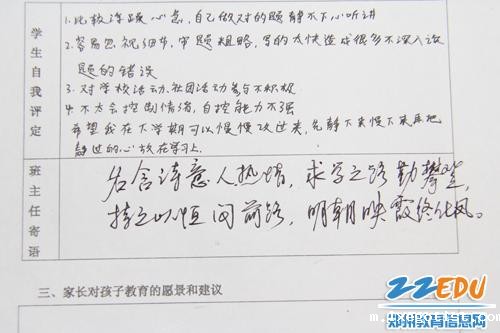 学生自我评定
1.比较浮躁心急，自己做对的题静不下心听讲
2.容易忽视细节，审题粗略，写的太快造成很多不深入该
题的错误
3.对学校活动、社团活动参与不积极
4.不太会控制情绪，自控能力不强
希望我在下学期可以慢慢改过来，先静下来慢下来再把
静过的心放在学习上.
班主任寄语
名含诗意人热情，求学之路勤攀登，
持之以恒向前路，明朝映霞终化风。
三、家长对孩子教育的愿景和建议
ZZEDU
郑州教育信息网